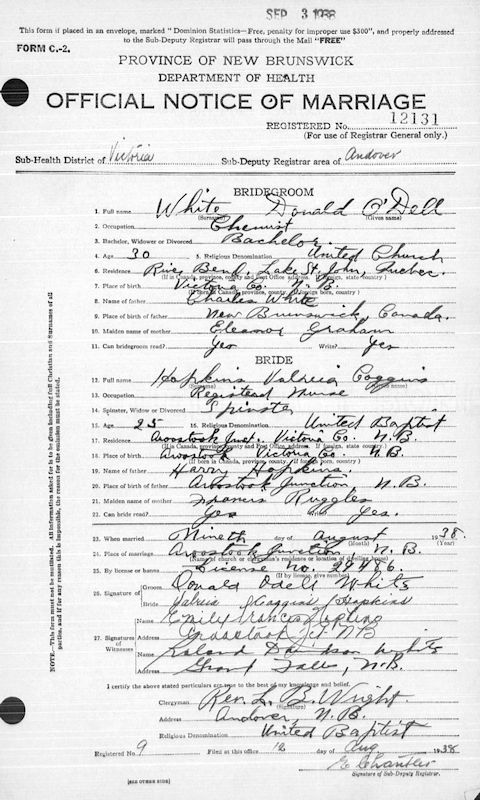 SEP 3 1938
This form if placed in an envelope, marked "Dominion Statistics—Free, penalty for improper use $300", and properly addressed
to the Sub-Deputy Registrar will pass through the Mail "FREE"
FORM C.-2.
PROVINCE OF NEW BRUNSWICK
DEPARTMENT OF HEALTH
OFFICIAL NOTICE OF MARRIAGE
REGISTERED No. 12131
(For use of Registrar General only.)
Sub-Health District of Victoria Sub-Deputy Registrar area of Andover
BRIDEGROOM
1. Full name White Donald O'Dell
(Surname) (Given names)
2. Occupation Chemist
3. Bachelor, Widower or Divorced Bachelor.
4. Age 30 5. Religious Denomination United Church
6. Residence River Bend, Lake St. John, Quebec.
(If in Canada, province, county and Post Office address. If foreign, state country)
7. Place of birth Victoria Co. N.B.
(If born in Canada, province, county. If foreign born, country)
8. Name of father Charles White
9. Place of birth of father New Brunswick, Canada.
10. Maiden name of mother Eleanor Graham
11. Can bridegroom read? Yes Write? Yes
BRIDE
12. Full name Hopkins Valrica Coggins
(Surname) (Given names)
13. Occupation Registead Nurse
14. Spinster, Widow or Divorced Spinster
15. Age 25 16. Religious Denomination United Baptist
17. Residence Aroostook Junct. Victoria Co. N.B.
(If in Canada, province, county and Post Office address. If foreign, state country)
18. Place of birth Aroostook Victoria Co. N.B.
(If born in Canada, province, county. If foreign born, country)
19. Name of father Harry Hopkins.
20. Place of birth of father Aroostook Junction, N.B.
21. Maiden name of mother Francis Ruggles
22. Can bride read? Yes Write? Yes.
23. When married Nineth day of August 1938.
(Month) (Year)
24. Place of marriage Aroostook Junction N.B.
(Name of church or clergyman's residence or location of dwelling house)
25. By license or banns License No. 29486.
(If by license, give number)
26. Signature of Groom Donald Odell White
Bride Coggins Hopkins
27. Signature of Witnesses
Name Emily Francis
Address Aroostook Jct N B
Name Roland Davidson White
Address Grand Falls, N.B.
I certify the above stated particulars are true to the best of my knowledge and belief.
Clergyman Rev. L. B. Wright.
Address Andover, N.B.
Religious Denomination United Baptist
Registered No. 9 Filed at this office 12 day of Aug 1938
E Chantler
Signature of Sub-Deputy Registrar.
(SEE OTHER SIDE)
NOTE.—This form must not be mutilated. All information asked for is to be given including full Christian and Surnames of all
parties, and if for any reason this is impossible, the reason for the omission must be stated.